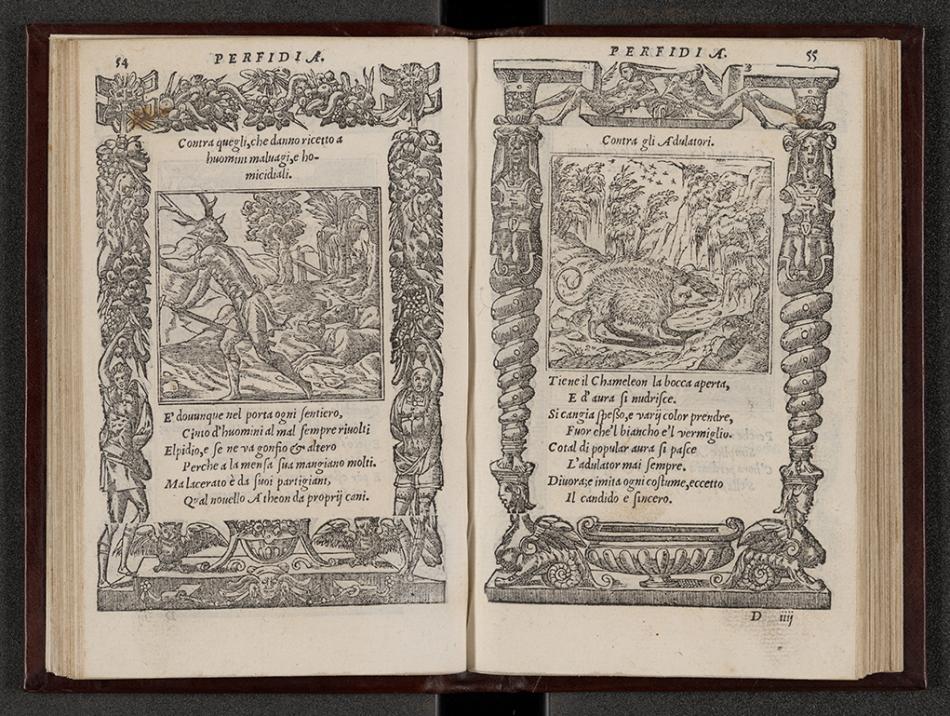 54
PERFIDIA.
Contra quegli, che danno ricetto a
huomini maluagi, e ho-
micidiali.
E' douunque nel porta ogni sentiero,
Cinto d'huomini al mal sempre riuolti
Elpidio, e se ne va gonfio & altero
Perche a la mensa sua mangiano molti.
Ma lacerato è da suoi partigiani,
Qual nouello Atheon da proprij cani.
PERFIDIA.
55
Contra gli Adulatori.
Tiene il Chameleon la bocca aperta,
E d'aura si nudrisce.
Si cangia spesso, e varij color prendre,
Fuor che'l biancho e'l vermiglio.
Cotal di popular aura si pasce
L'adulator mai sempre.
Diuora; e imita ogni costume, eccetto
Il candido e sincero.
D iiij